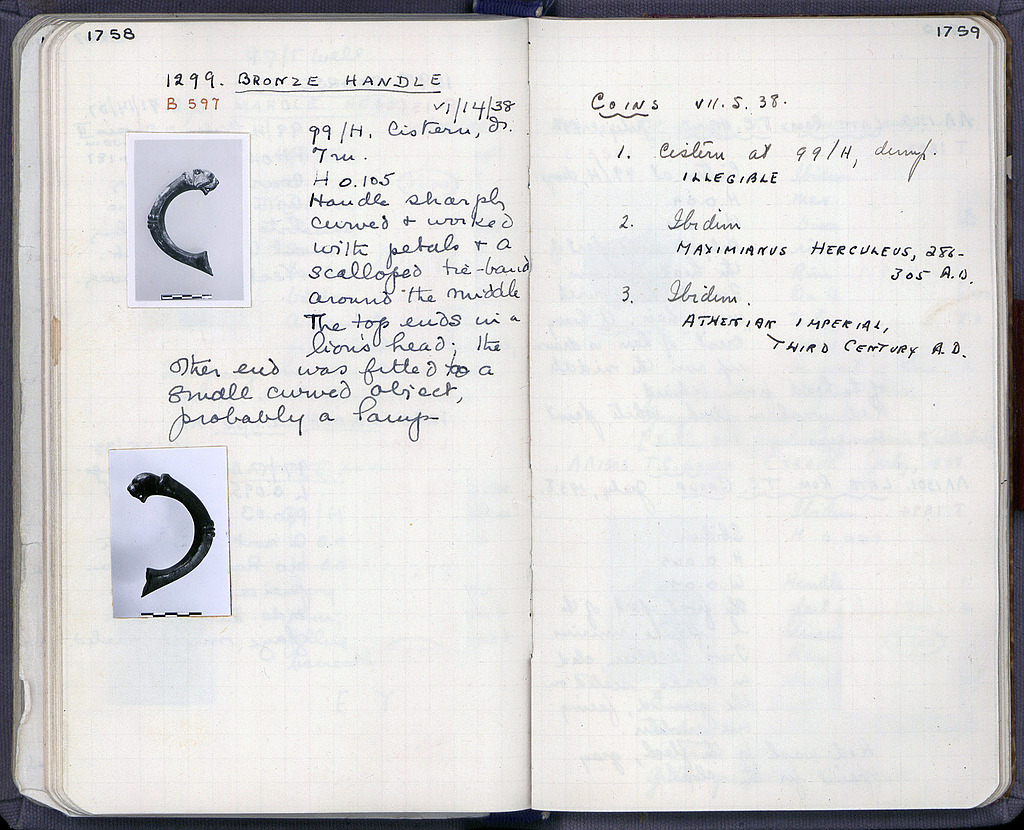 1758
1299. BRONZE HANDLE
B 597
VI/14/38
99/H. Cistern, dr.
7 m.
H 0.105
Handle sharply
curved & worked
with petals & a
scalloped tie-band
around the middle
The top ends in a
lion's head; the
other end was fitted to a
small curved object,
probably a lamp
1759
COINS VII. 5. 38.
1. Cistern at 99/H, dump.
ILLEGIBLE
2. Ibidem
MAXIMIANUS HERCULEUS, 286-
305 A.D.
3. Ibidem.
ATHENIAN IMPERIAL,
THIRD CENTURY A.D.